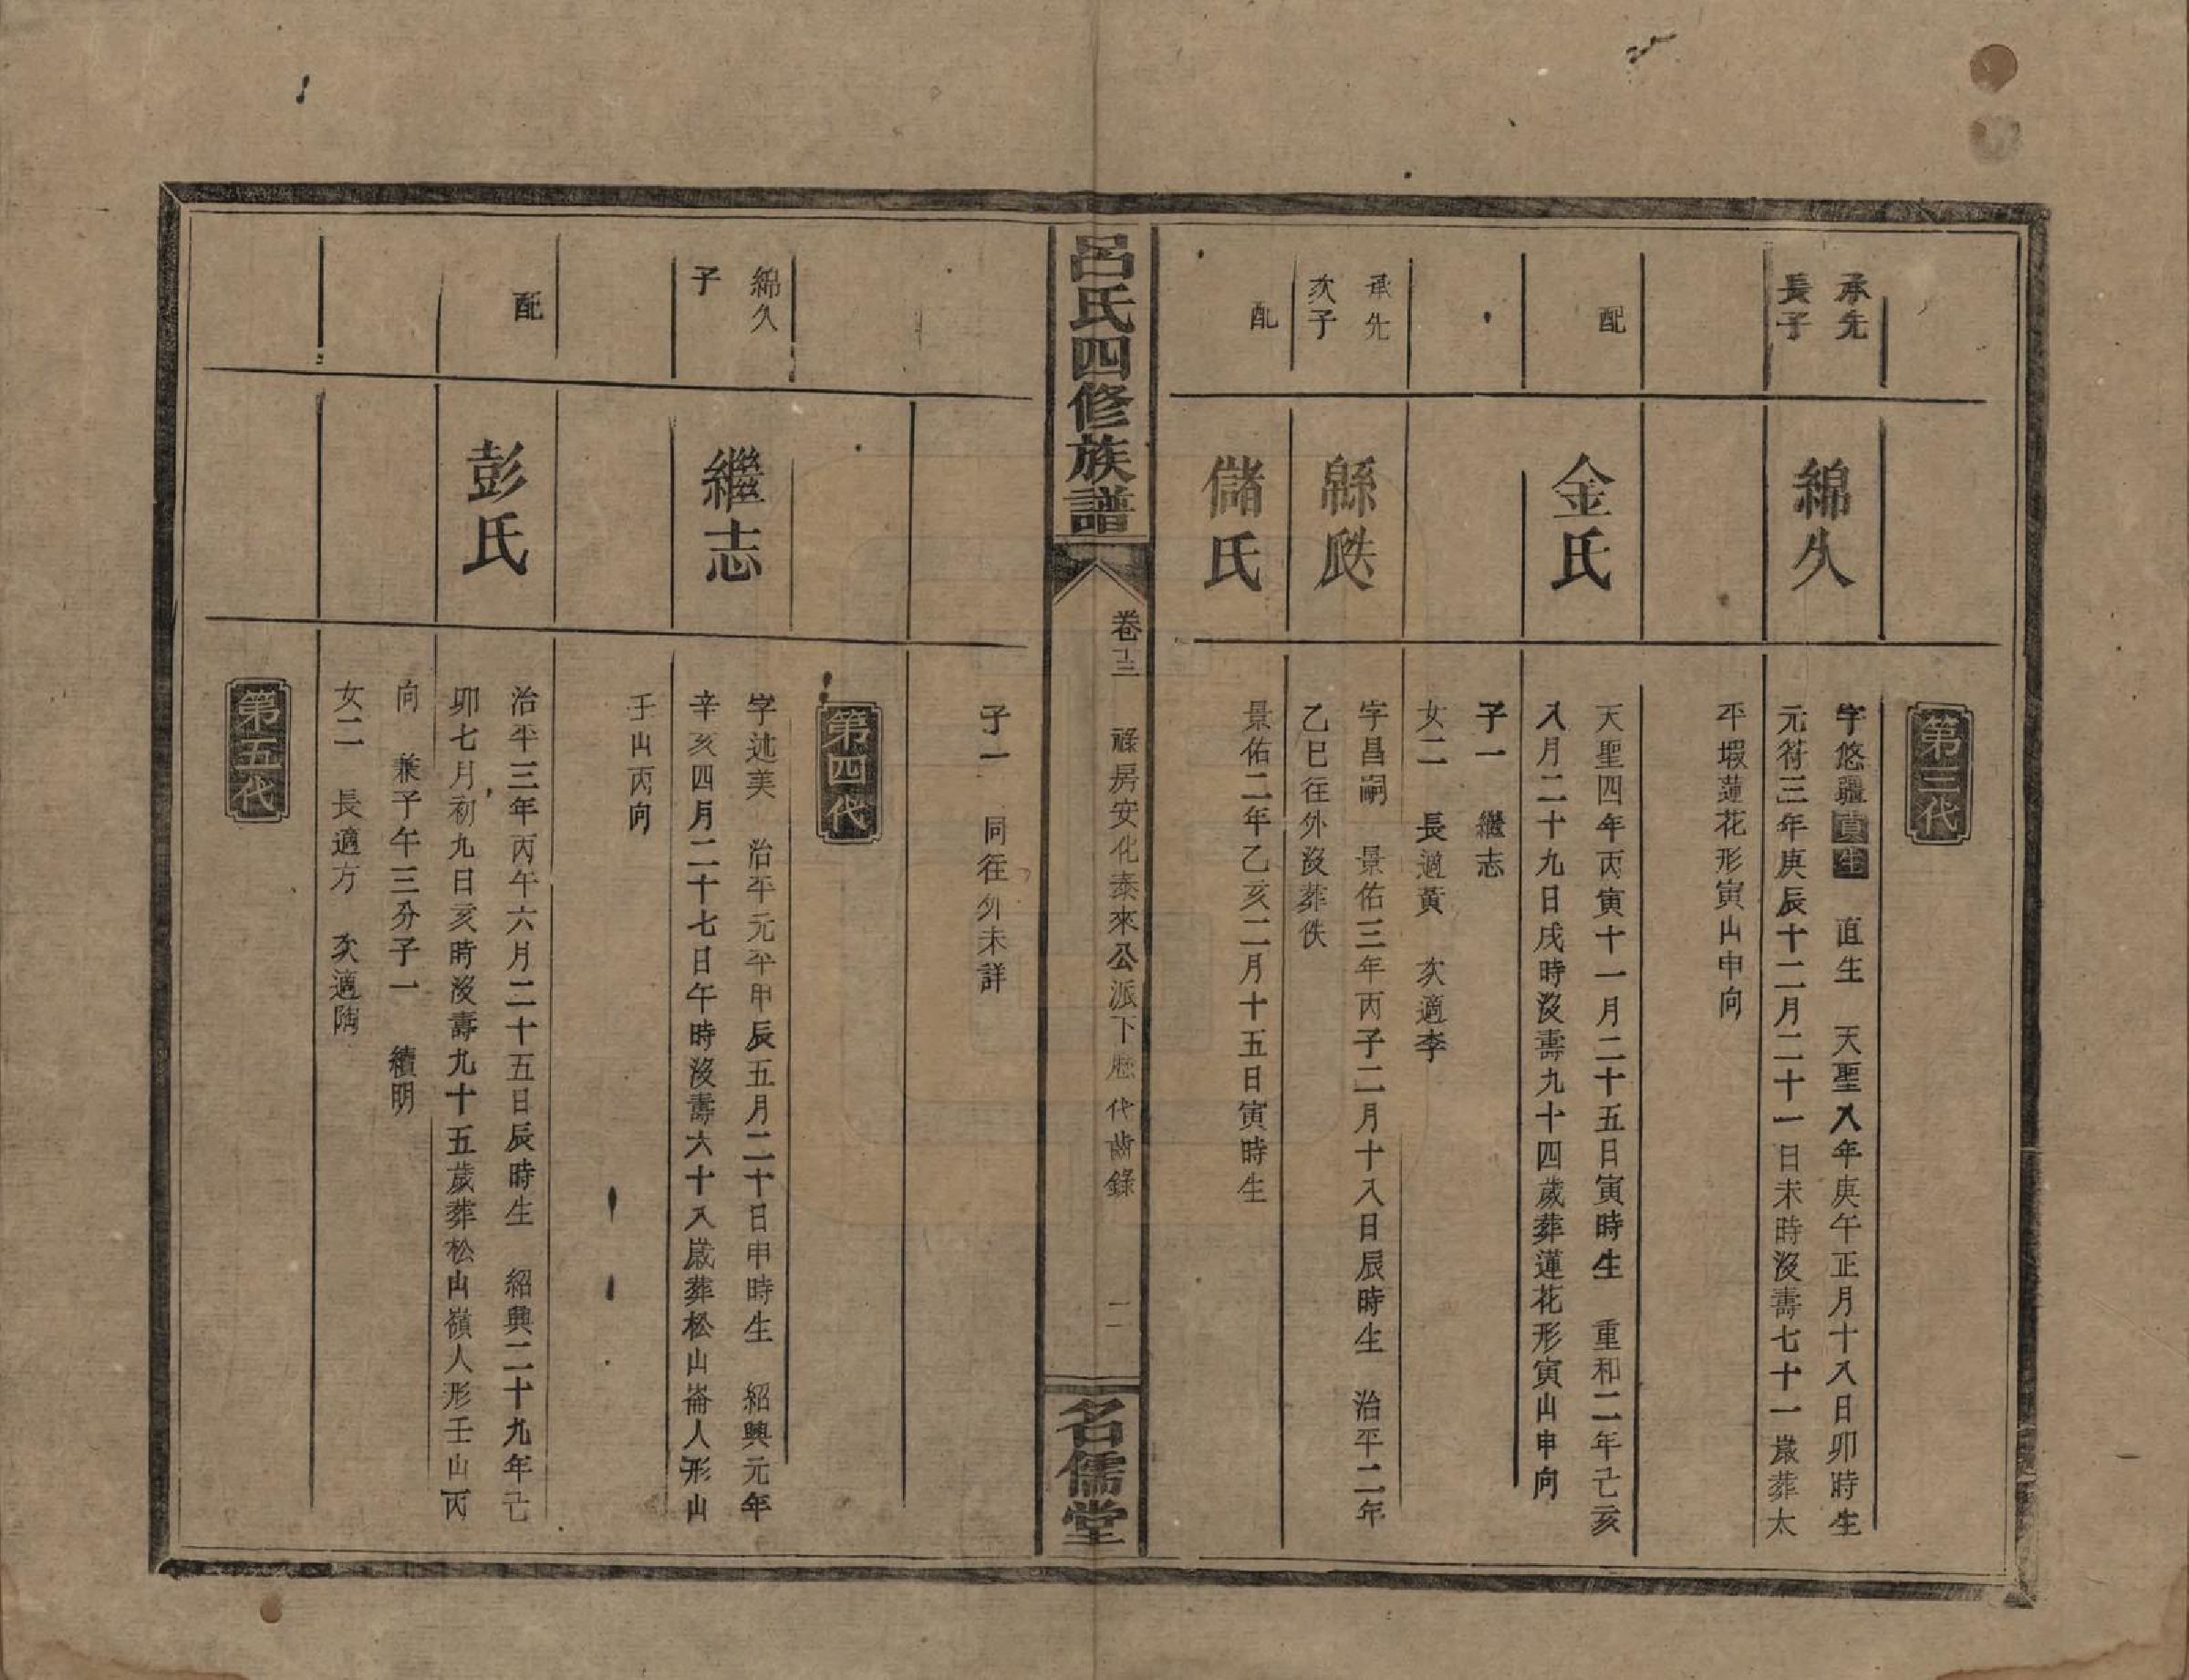 第三代
承先
長子
綿久
字悠疆貢生 直生 天聖八年庚午正月十八日卯時生
元符三年庚辰十二月二十一日未時沒壽七十一歲葬太
平塅蓮花形寅山申向
配
金氏
天聖四年丙寅十一月二十五日寅時生 重和二年己亥
八月二十九日戌時沒壽九十四歲葬蓮花形寅山申向
子一 繼志
女二 長適黃 次適李
承先
次子
緜瓞
字昌嗣 景佑三年丙子二月十八日辰時生 治平二年
乙巳往外沒葬佚
配
儲氏
景佑二年乙亥二月十五日寅時生
呂氏四修族譜
卷十三 祿房安化泰來公派下歷代齒錄 二
名儒堂
子一 同往外未詳
第四代
綿久
子
繼志
字述美 治平元年甲辰五月二十日申時生 紹興元年
辛亥四月二十七日午時沒壽六十八歲葬松山崙人形山
壬山丙向
配
彭氏
治平三年丙午六月二十五日辰時生 紹興二十九年己
卯七月初九日亥時沒壽九十五歲葬松山嶺人形壬山丙
向 兼子午三分子一 續明
女二 長適方 次適陶
第五代